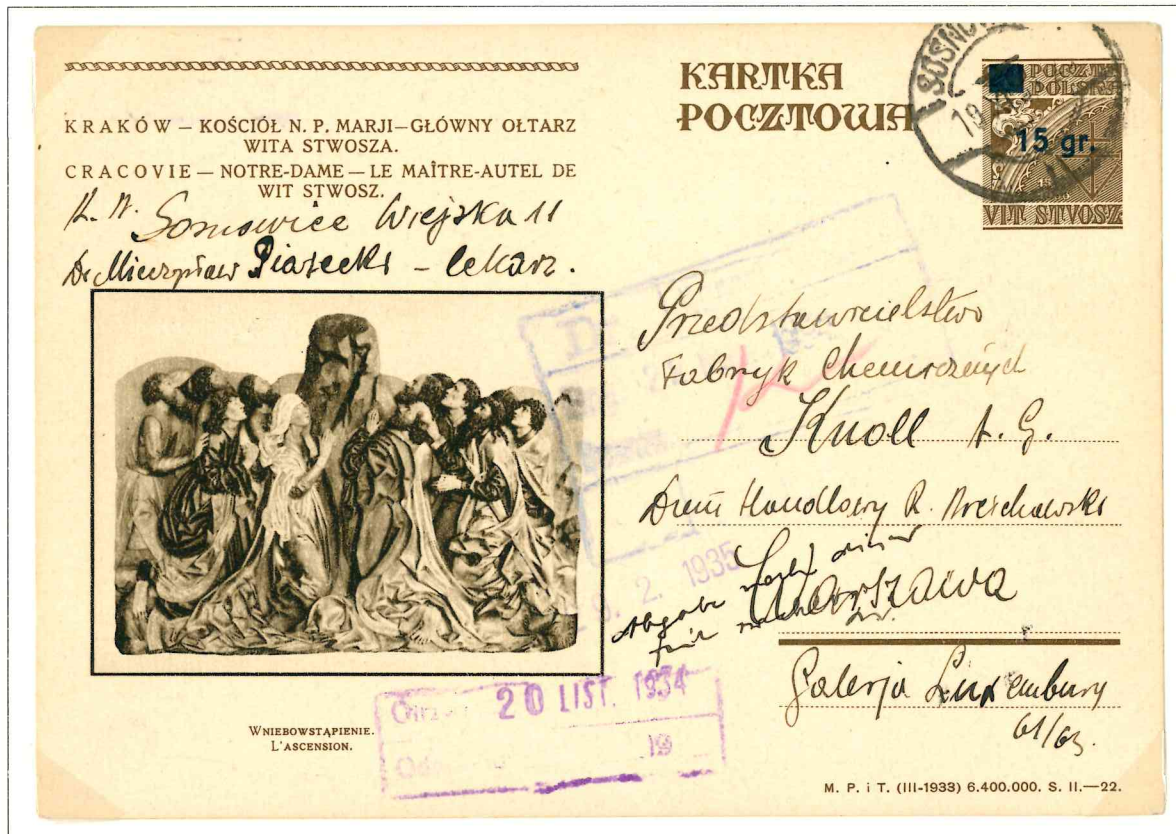 KRAKÓW — KOŚCIÓŁ N. P. MARJI—GŁÓWNY OŁTARZ
WITA STWOSZA.
CRACOVIE — NOTRE-DAME — LE MAÎTRE-AUTEL DE
WIT STWOSZ.
Sosnowice Wiejska 11
Dr Mieczysław Piasecki – lekarz.
WNIEBOWSTĄPIENIE.
L'ASCENSION.
KARTKA
POCZTOWA
POCZTA
POLSKA
15 gr.
VIT STVOSZ
Przedstawicielstwo
Fabryk Chemicznych
Knoll A. G.
Dom Handlowy R.
2. 1935
Warszawa
Galerja Luxemburg
61/63.
20 LIST. 1934
19
M. P. i T. (III-1933) 6.400.000. S. II.—22.